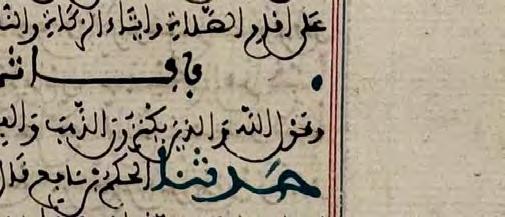 على اقام الصلاة وايتاء الزكاة
باب اثم
وقول الله والذين يكنزون الذهب
حدثنا الحكم بن نافع قال